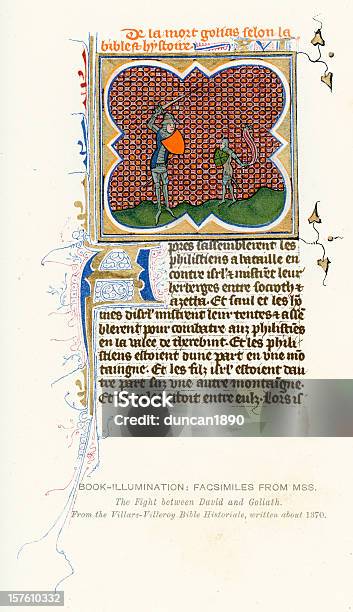 De la mort golias selon la
bible & hystoire
Apres sassemblerent les
philistiens a bataille en
contre isrl & mistrent leur
herberges entre socoth &
azetha. Et saul et les fil
iques disrl mistrent leur tentes & asse
blerent pour combatre auz philistiens
en la valee de therebint. Et les phili
stiens estoient dune part en vne mo
taingne. Et les filz isrl estoient dau
tre part suz vne autre montaingne.
Et estoit entre eulz. Lors is
iStock
Credit: duncan1890
BOOK-ILLUMINATION: FACSIMILES FROM MSS.
The Fight between David and Goliath.
From the Villars-Villeroy Bible Historiale, written about 1370.
157610332